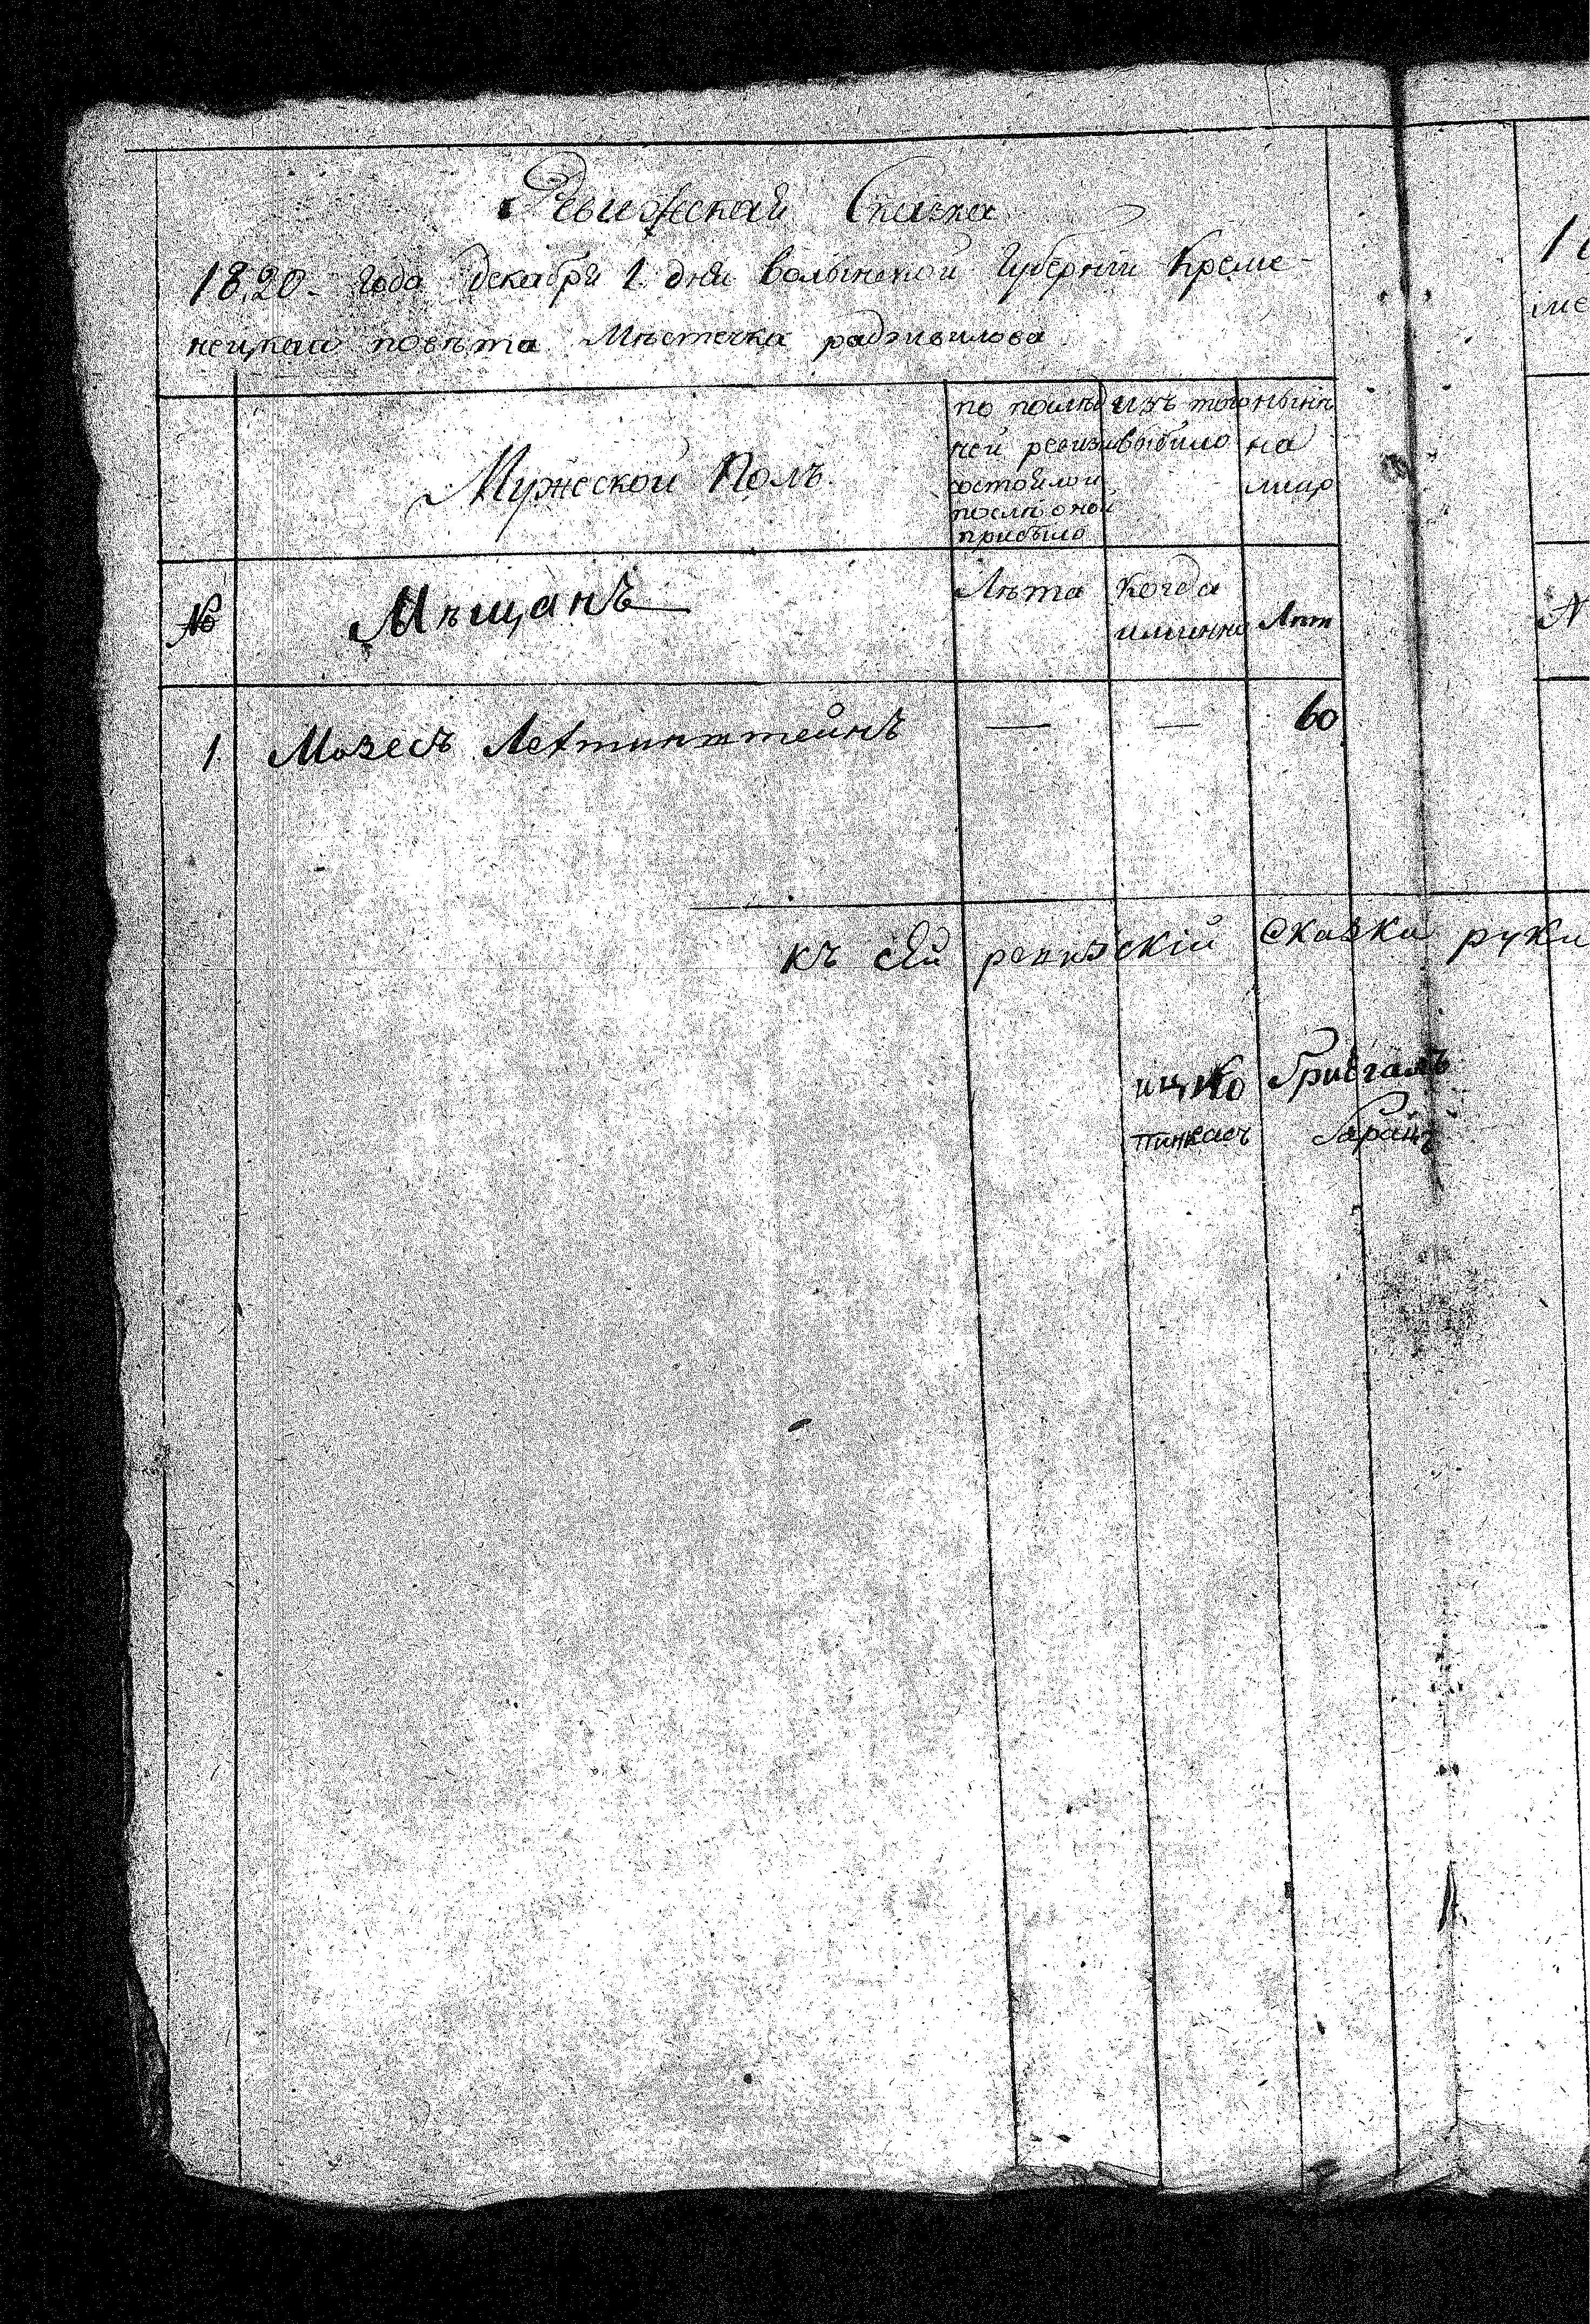 Ревижская Сказка
1820. года декабря 1. дня волынской Губернии Креме-
нецкаго повѣта Мѣстечка радзивилова
Мужеской Полъ.
по послѣд
ней ревизии
состояло и
после оной
прибыло
изъ того
выбыло
нынѣ
на
лицо
№
Мѣщанъ
Лѣта
когда
именно
Лѣт
1.
Мозесъ
—
—
60
къ сей ревизскій сказки руки
ицко
пинкасъ